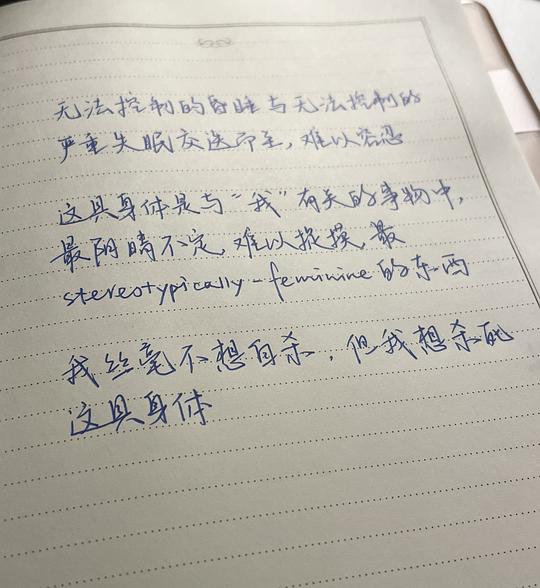 无法控制的昏睡与无法控制的
严重失眠交迭而至，难以容忍
这具身体是与“我”有关的事物中，
最阴晴不定、难以捉摸、最
stereotypically-feminine的东西
我丝毫不想自杀，但我想杀死
这具身体